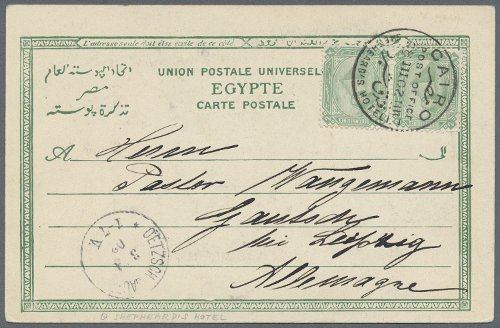 L'adresse seule doit être écrite de ce côté
UNION POSTALE UNIVERSELLE
EGYPTE
CARTE POSTALE
اتحاد البوسته العام
مصر
تذكرة بوسته
CAIRO
POST OFFICE
SHEPHEARD'S HOTEL
A
الى
Herrn
Pastor Wangemann
Gautsch
bei Leipzig
Allemagne
OETZSCH
SHEPHEARDIS HOTEL